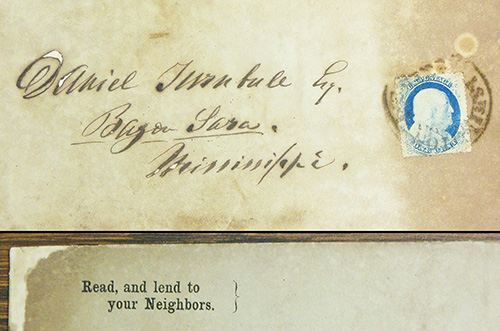 Daniel Turnbull Esq.
Bayou Sara.
Mississippi.
Read, and lend to
your Neighbors. }